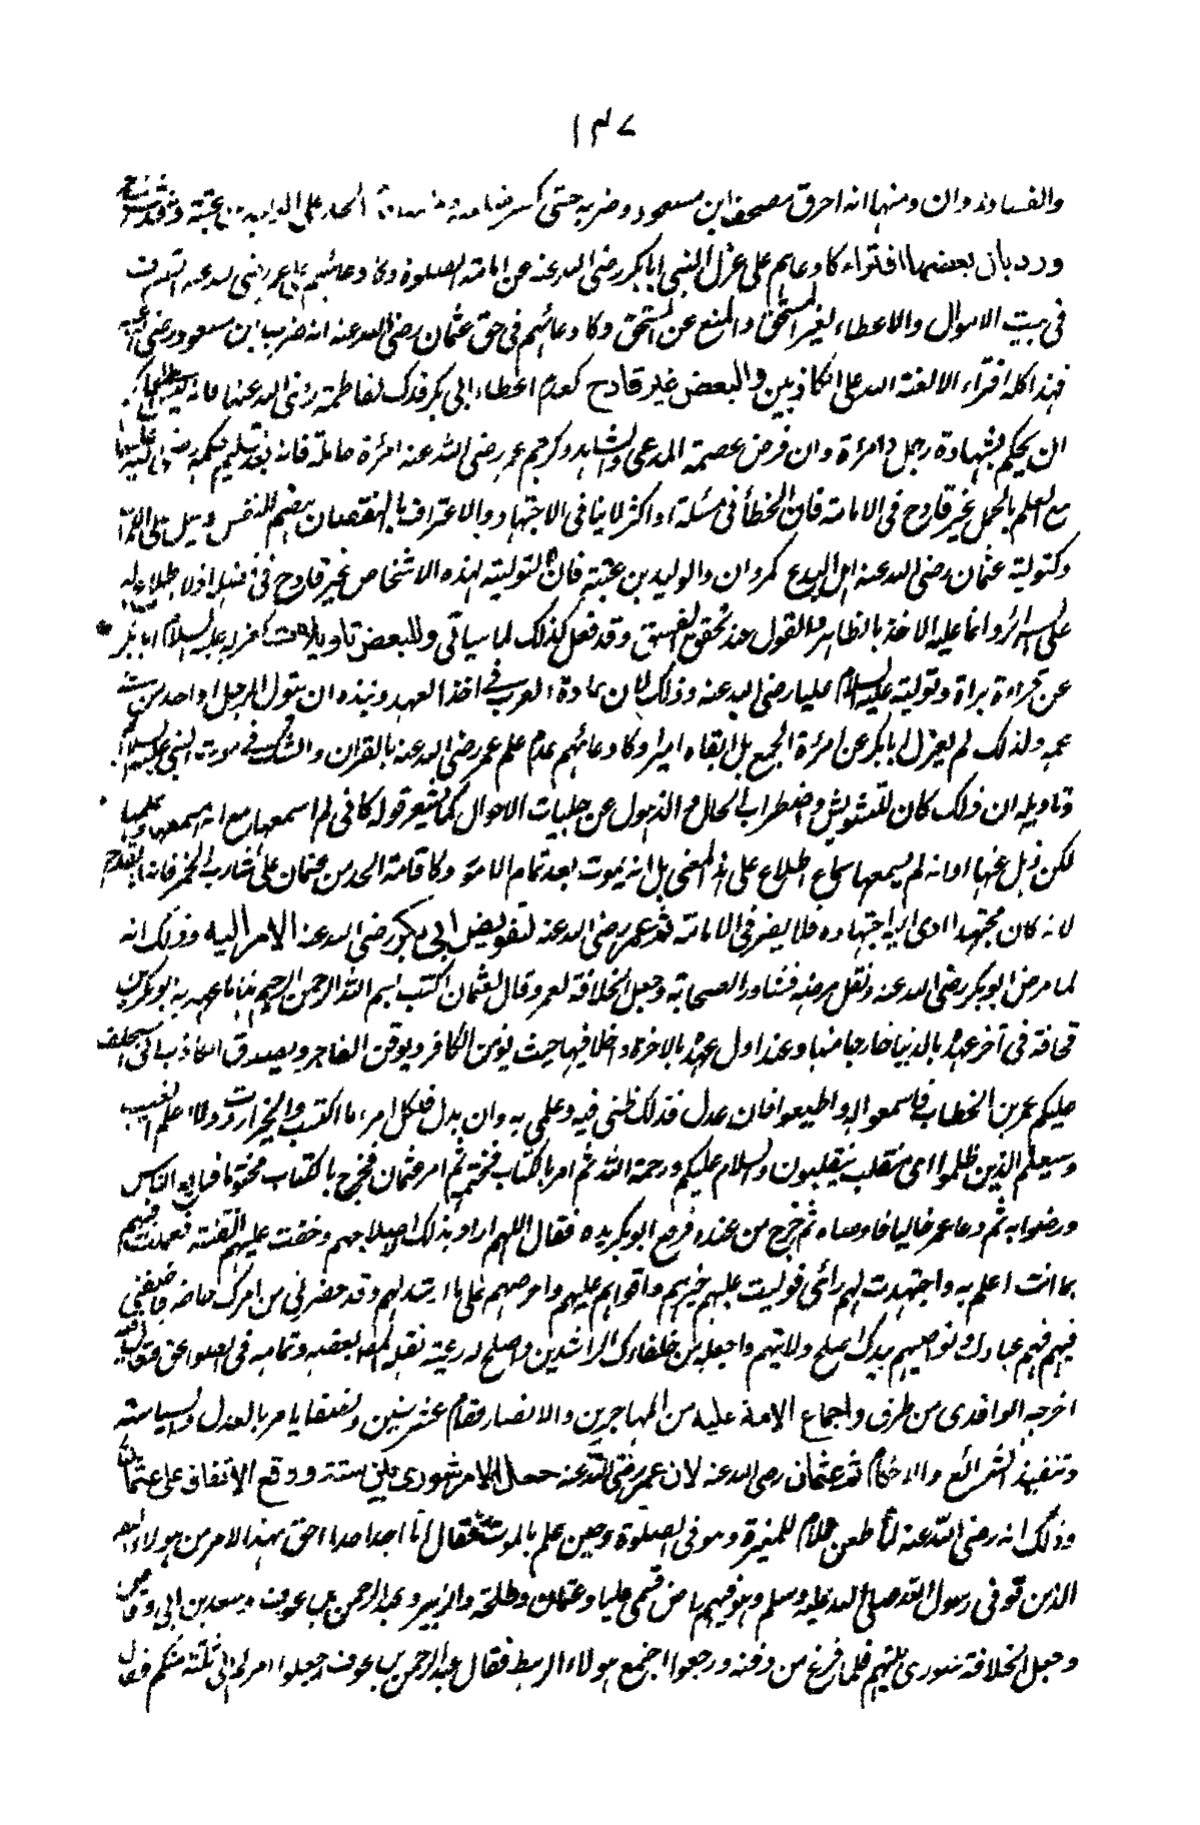 ١٣٧
والفساد وان ومنها انه احرق مصحف ابن مسعود وضربه حتى كسر
ورد بان بعضها افتراء كادعائهم على عزل النبى ابابكر رضى الله عنه عن امامة الصلوة وكادعائهم على عمر رضى الله عنه التصرف
فى بيت الاموال والاعطاء لغير المستحق والمنع عن المستحق وكادعائهم فى حق عثمان رضى الله عنه انه ضرب ابن مسعود رضى الله عنه
فهذا كله افتراء الا لعنة الله على الكاذبين والبعض غير قادح كعدم اعطاء ابى بكر فدك لفاطمة رضى الله عنها فانه
ان يحكم بشهادة رجل وامرأة وان فرض عصمة المدعى والشاهد وكرجم عمر رضى الله عنه امرأة حاملة فانه بعد تسليم
مع العلم بالحمل غير قادح فى الامامة فان الخطأ فى مسئلة او اكثر لا ينافى الاجتهاد والاعتراف بالنقصان هضم للنفس
وكتولية عثمان رضى الله عنه اهل البدع كمروان والوليد بن عتبة فان التولية لهذه الاشخاص غير قادح فى فضله اذ لا اطلاع له
على السرائر وانما عليه الاخذ بالظاهر والقول عند تحقق الفسق وقد فعل كذلك لما سيأتى وللبعض تاويلات كعزله عليه السلام ابابكر
عن قراءة براة وتوليته عليه السلام عليا رضى الله عنه وذلك لان عادة العرب فى اخذ العهد ونبذه ان يتول الرجل او احد من بنى
عمه ولذلك لم يعزل ابابكر عن امرة الجمع بل ابقاه اميرا وكادعائهم عدم علم عمر رضى الله عنه بالقران والشك فى موت النبى عليه السلام
وتاويله ان ذلك كان للتشويش واضطراب الحال والذهول عن جليات الاحوال كما يشعر قوله كانى لم اسمعها مع انه سمعها وعلمها
لكن ذهل عنها او انه لم يسمعها سماع اطلاع على هذا المعنى بل انه يموت بعد تمام الامر وكاقامة الحد من عثمان على شارب الخمر فانه لم يقدح
لانه كان مجتهدا ادى اليه اجتهاده فلا يضر فى الامامة ثم عمر رضى الله عنه لتفويض ابى بكر رضى الله عنه الامر اليه وذلك انه
لما مرض ابو بكر رضى الله عنه وثقل مرضه فشاور الصحابة وجعل الخلافة لعمر وقال لعثمان اكتب بسم الله الرحمن الرحيم هذا ما عهد به ابو بكر بن
قحافة فى آخر عهده بالدنيا خارجا منها وعند اول عهده بالاخرة داخلا فيها حيث يؤمن الكافر ويوقن الفاجر ويصدق الكاذب انى استخلف
عليكم عمر بن الخطاب فاسمعوا له واطيعوا فان عدل فذلك ظنى فيه وعلمى به وان بدل فلكل امرء ما اكتسب والخير اردت ولا اعلم الغيب
وسيعلم الذين ظلموا اى منقلب ينقلبون والسلام عليكم ورحمة الله ثم امر بالكتاب فختم ثم امر عثمان فخرج بالكتاب مختوما فبايع الناس
ورضوا به ثم دعا عمر خاليا فاوصاه ثم خرج من عنده فرفع ابو بكر يده فقال اللهم اراد بذلك اصلاحهم وخفت عليهم الفتنة فعملت فيهم
بما انت اعلم به واجتهدت لهم رأئى فوليت عليهم خيرهم واقواهم عليهم واحرصهم على ما ارشدهم وقد حضرنى من امرك ما حضر فاخلفنى
فيهم فهم عبادك ونواصيهم بيدك اصلح ولاتهم واجعله من خلفاءك الراشدين واصلح له رعيته نقله بعضه وتمامه فى الصواعق
اخرجه الواقدى من طرق واجماع الامة عليه من المهاجرين والانصار فقام عشر سنين ونصفا يامر بالعدل والسياسة
وتنفيذ الشرائع والاحكام ثم عثمان رضى الله عنه لان عمر رضى الله عنه جعل الامر شورى بين ستة ووقع الاتفاق على عثمان
وذلك انه رضى الله عنه لما طعن غلام للمغيرة وهو فى الصلوة وحين علم بالموت فقال ما اجد احدا احق بهذا الامر من هولاء
الذين توفى رسول الله صلى الله عليه وسلم وهو فيهم راض فسمى عليا وعثمان وطلحة والزبير وعبد الرحمن بن عوف وسعد بن ابى وقاص
وجعل الخلافة شورى بينهم فلما فرغ من دفنه ورجعوا اجتمع هولاء الرهط فقال عبد الرحمن بن عوف اجعلوا امركم الى ثلثة منكم فقال